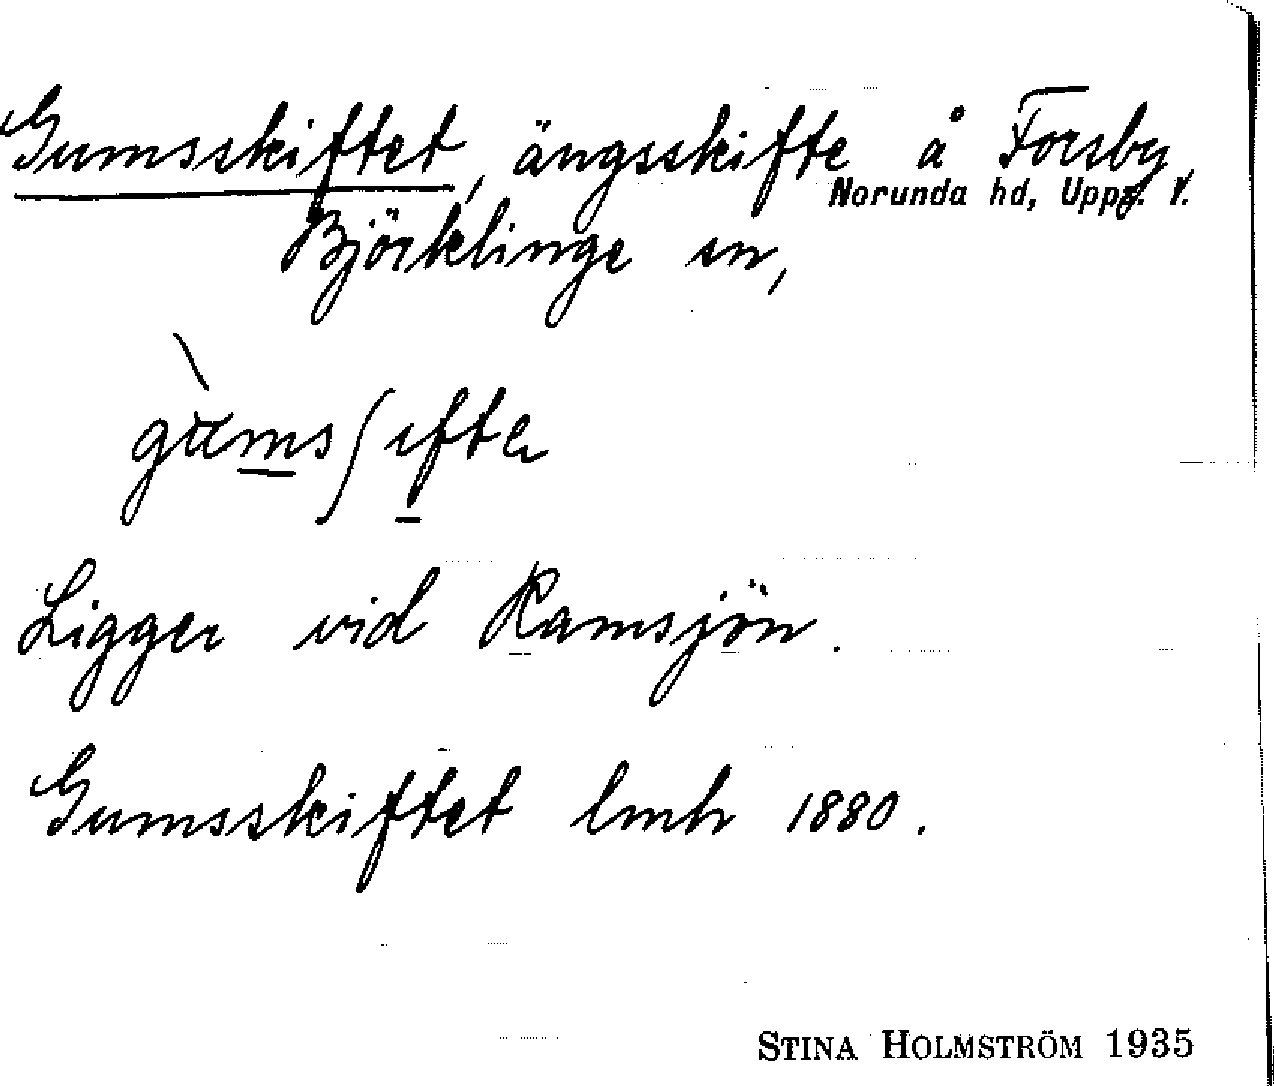 Gumsskiftet, ängsskifte å Forsby,
Norunda hd, Upps. l.
Björklinge sn,
gùmsʃifte
Ligger vid Ramsjön.
Gumsskiftet lmh 1880.
STINA HOLMSTRÖM 1935